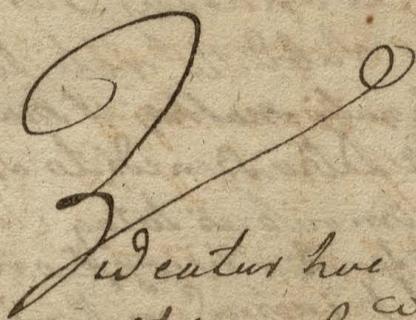 Videatur hoc